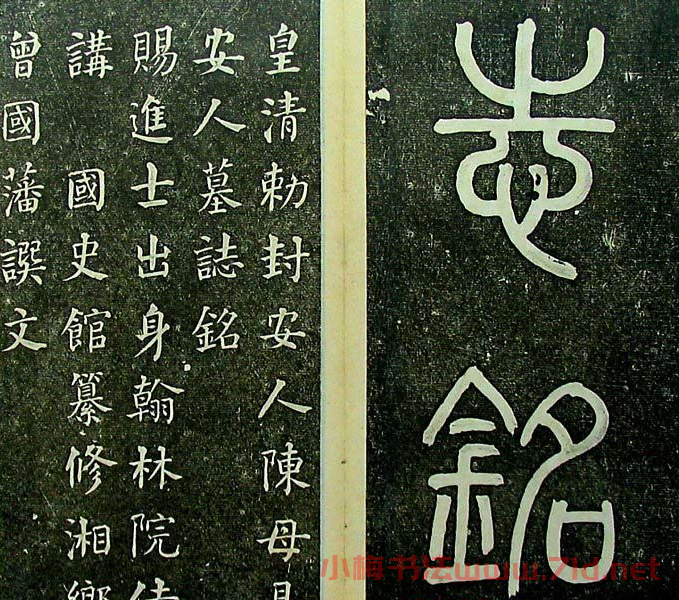 志銘
皇清勅封安人陳母
安人墓誌銘
賜進士出身翰林院侍
講 國史館纂修湘鄉
曾國藩譔文
小梅书法www.7ld.net